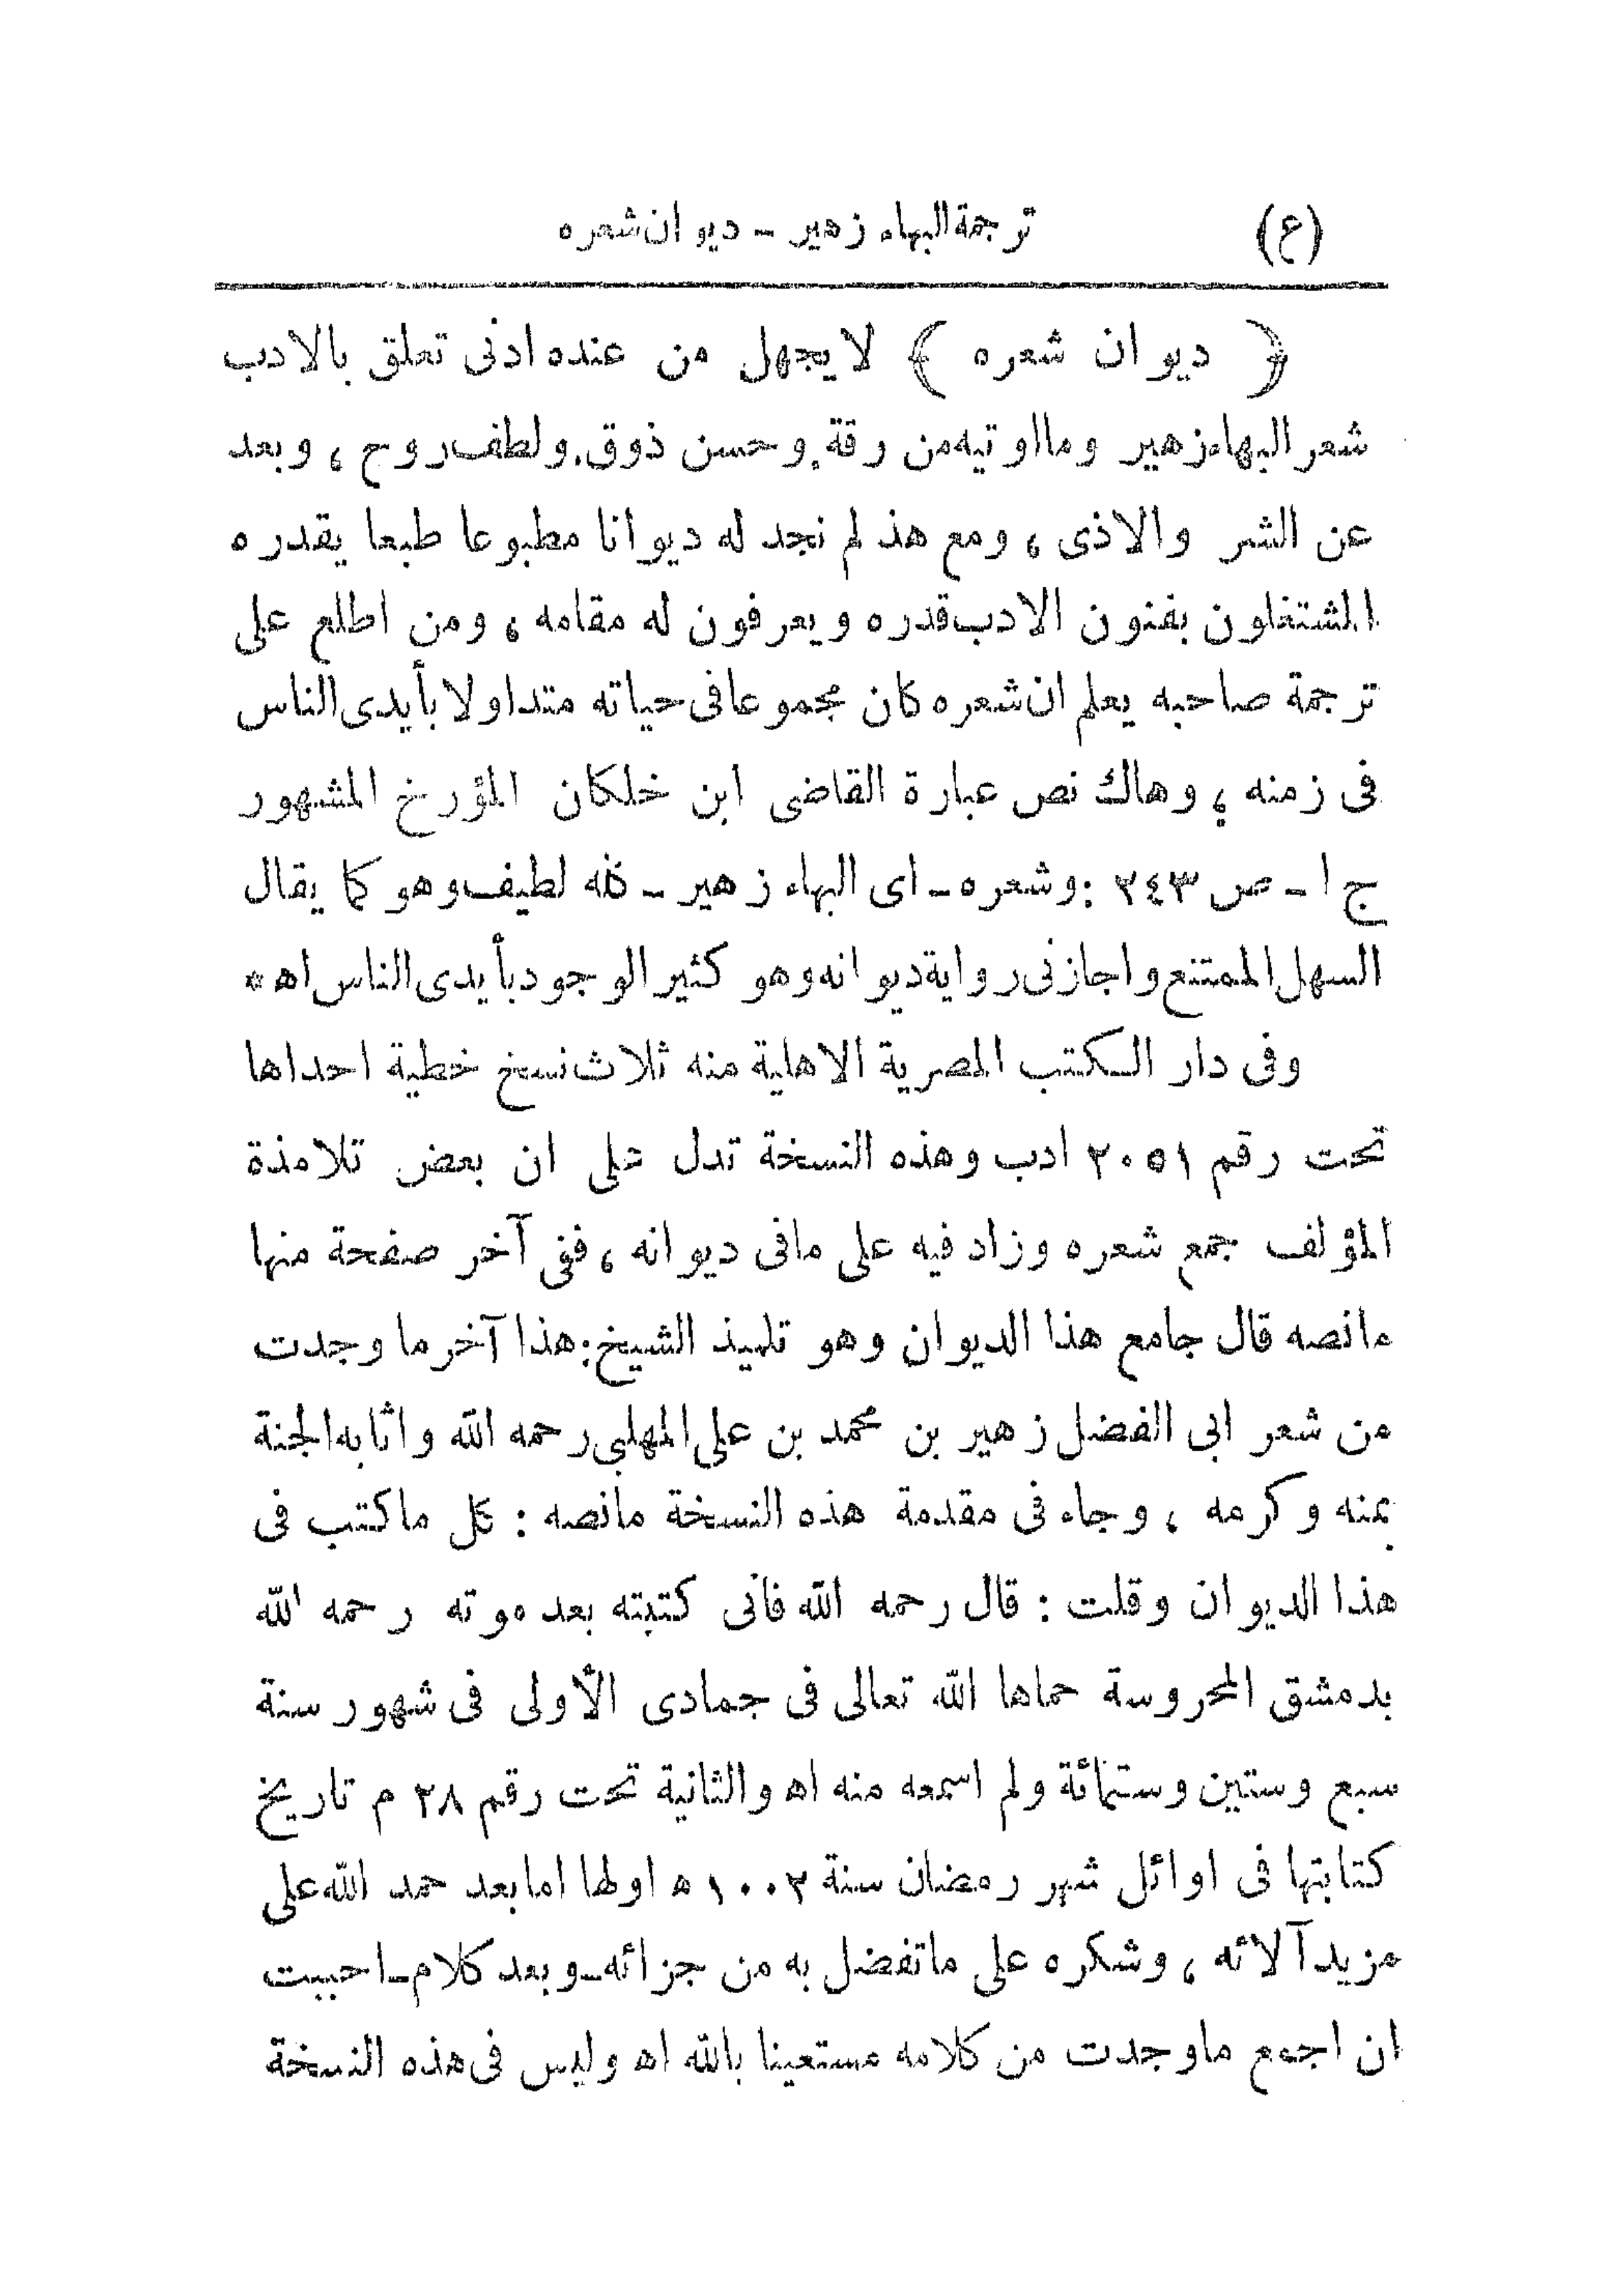 (ع) ترجمة البهاء زهير - ديوان شعره
﴿ ديوان شعره ﴾ لا يجهل من عنده ادنى تعلق بالادب
شعر البهاء زهير وما اوتيه من رقة. وحسن ذوق. ولطف روح ، وبعد
عن الشر والاذى ، ومع هذ لم نجد له ديوانا مطبوعا طبعا يقدره
المشتغلون بفنون الادب قدره ويعرفون له مقامه ، ومن اطلع على
ترجمة صاحبه يعلم ان شعره كان مجموعا فى حياته متداولا بأيدى الناس
فى زمنه ، وهاك نص عبارة القاضى ابن خلكان المؤرخ المشهور
ج ١ - ص ٢٤٣ : وشعره - اى البهاء زهير - كله لطيف وهو كما يقال
السهل الممتنع واجازنى رواية ديوانه وهو كثير الوجود بأيدى الناس اه *
وفى دار الكتب المصرية الاهلية منه ثلاث نسخ خطية احداها
تحت رقم ٢٠٥١ ادب وهذه النسخة تدل على ان بعض تلامذة
المؤلف جمع شعره وزاد فيه على ما فى ديوانه ، ففى آخر صفحة منها
مانصه قال جامع هذا الديوان وهو تلميذ الشيخ: هذا آخر ما وجدت
من شعر ابى الفضل زهير بن محمد بن على المهلبى رحمه الله واثابه الجنة
بمنه وكرمه ، وجاء فى مقدمة هذه النسخة مانصه : كل ما كتب فى
هذا الديوان وقلت : قال رحمه الله فأنى كتبته بعد موته رحمه الله
بدمشق المحروسة حماها الله تعالى فى جمادى الأولى فى شهور سنة
سبع وستين وستمائة ولم اسمعه منه اه والثانية تحت رقم ٢٨ م تاريخ
كتابتها فى اوائل شهر رمضان سنة ١٠٠٢ ه اولها اما بعد حمد الله على
مزيد آلائه ، وشكره على ما تفضل به من جزائه - وبعد كلام - احببت
ان اجمع ما وجدت من كلامه مستعينا بالله اه وليس فى هذه النسخة